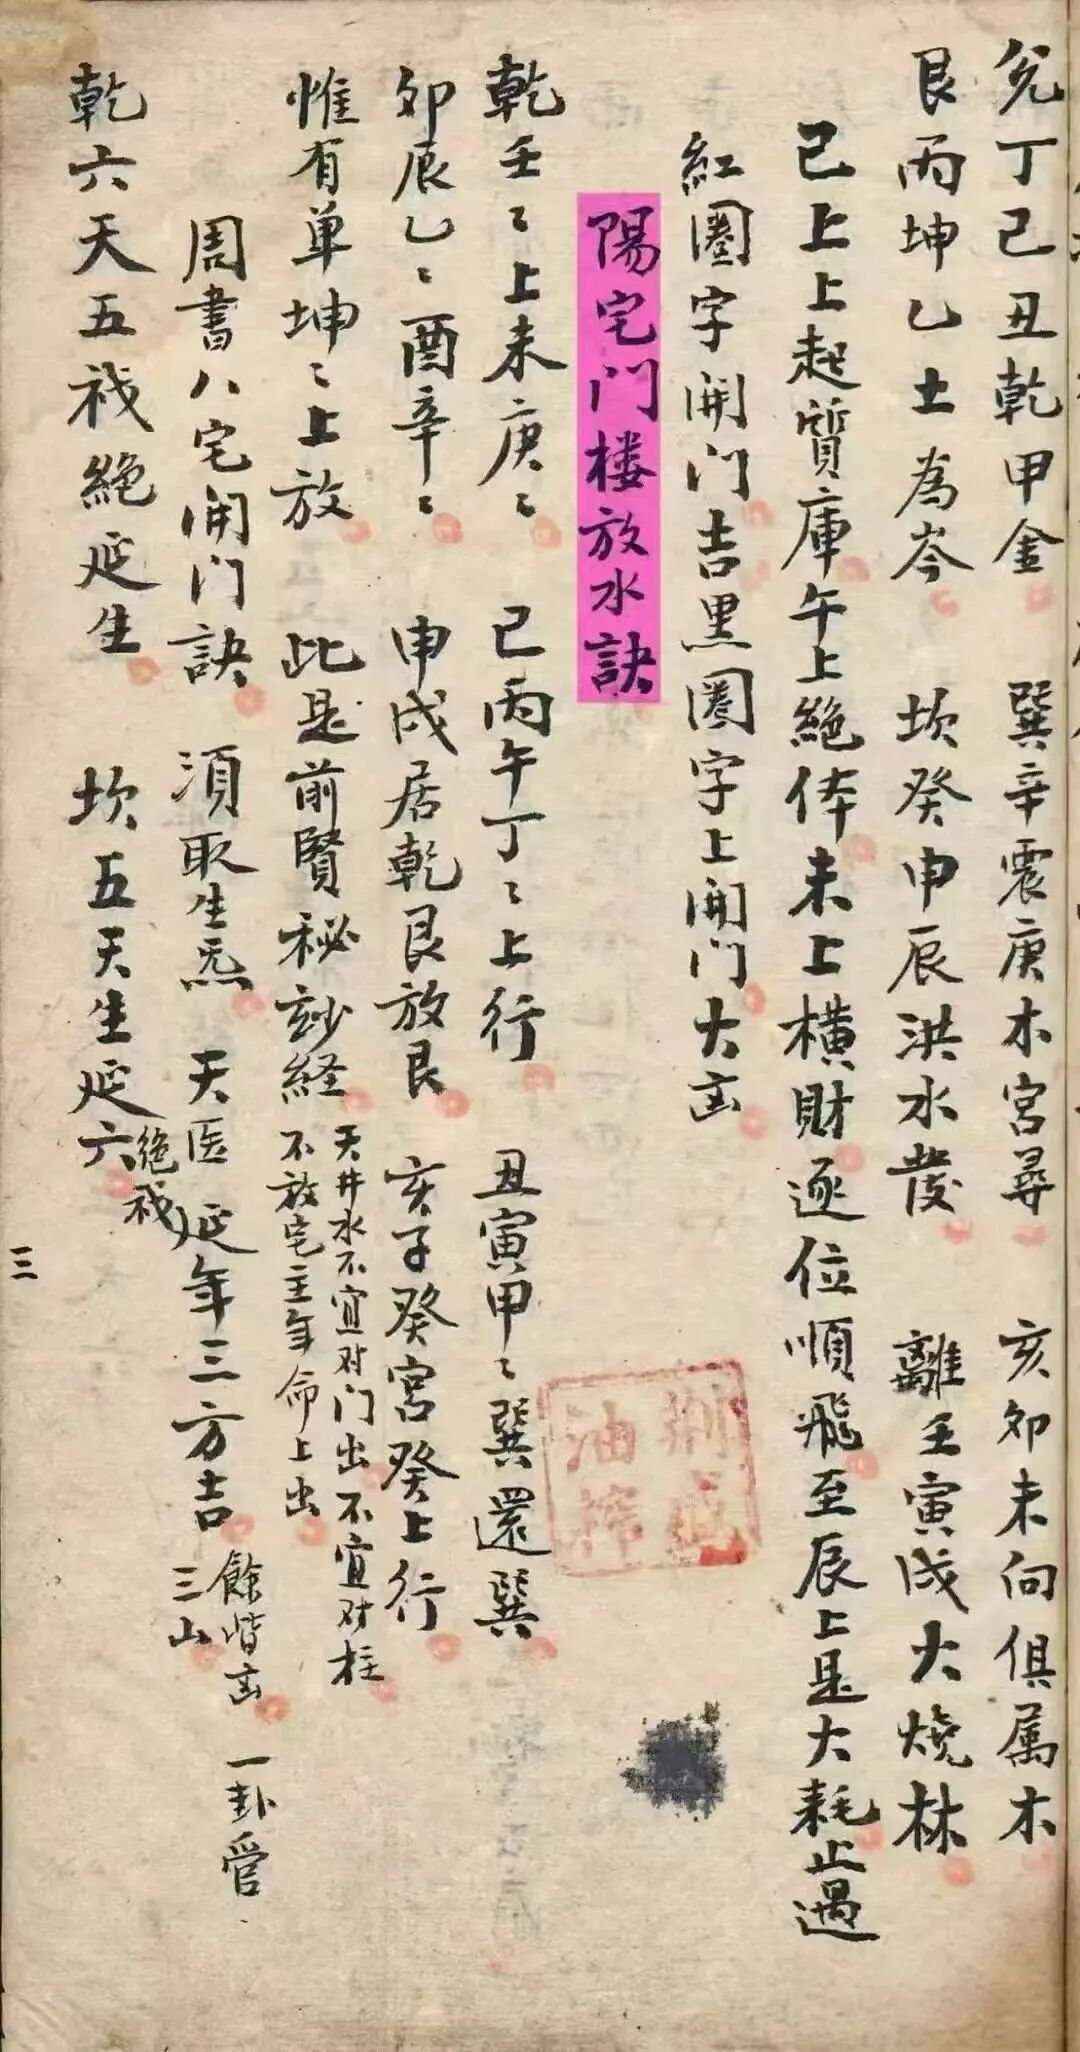 兌丁巳丑乾甲金 巽辛震庚木宮尋 亥卯未向俱属木
艮丙坤乙土為岑 坎癸申辰洪水發 離壬寅戌大燒林
已上上起質庫午上絕体未上橫財逐位順飛至辰上是大耗止遇
紅圈字開门吉黑圈字上開门大凶
陽宅门楼放水訣
乾壬〻上未庚〻 巳丙午丁〻上行 丑寅甲〻巽還巽
卯辰乙〻酉辛〻 申戌居乾艮放艮 亥子癸宮癸上行
惟有单坤〻上放 此是前賢秘玅経 天井水不宜对门出不宜对柱
不放宅主年命上出
周書八宅開门訣 須取生炁 天医延年三方吉 餘皆凶 一卦管
三山
乾六天五禍絕延生 坎五天生延絕禍六
三
油榨